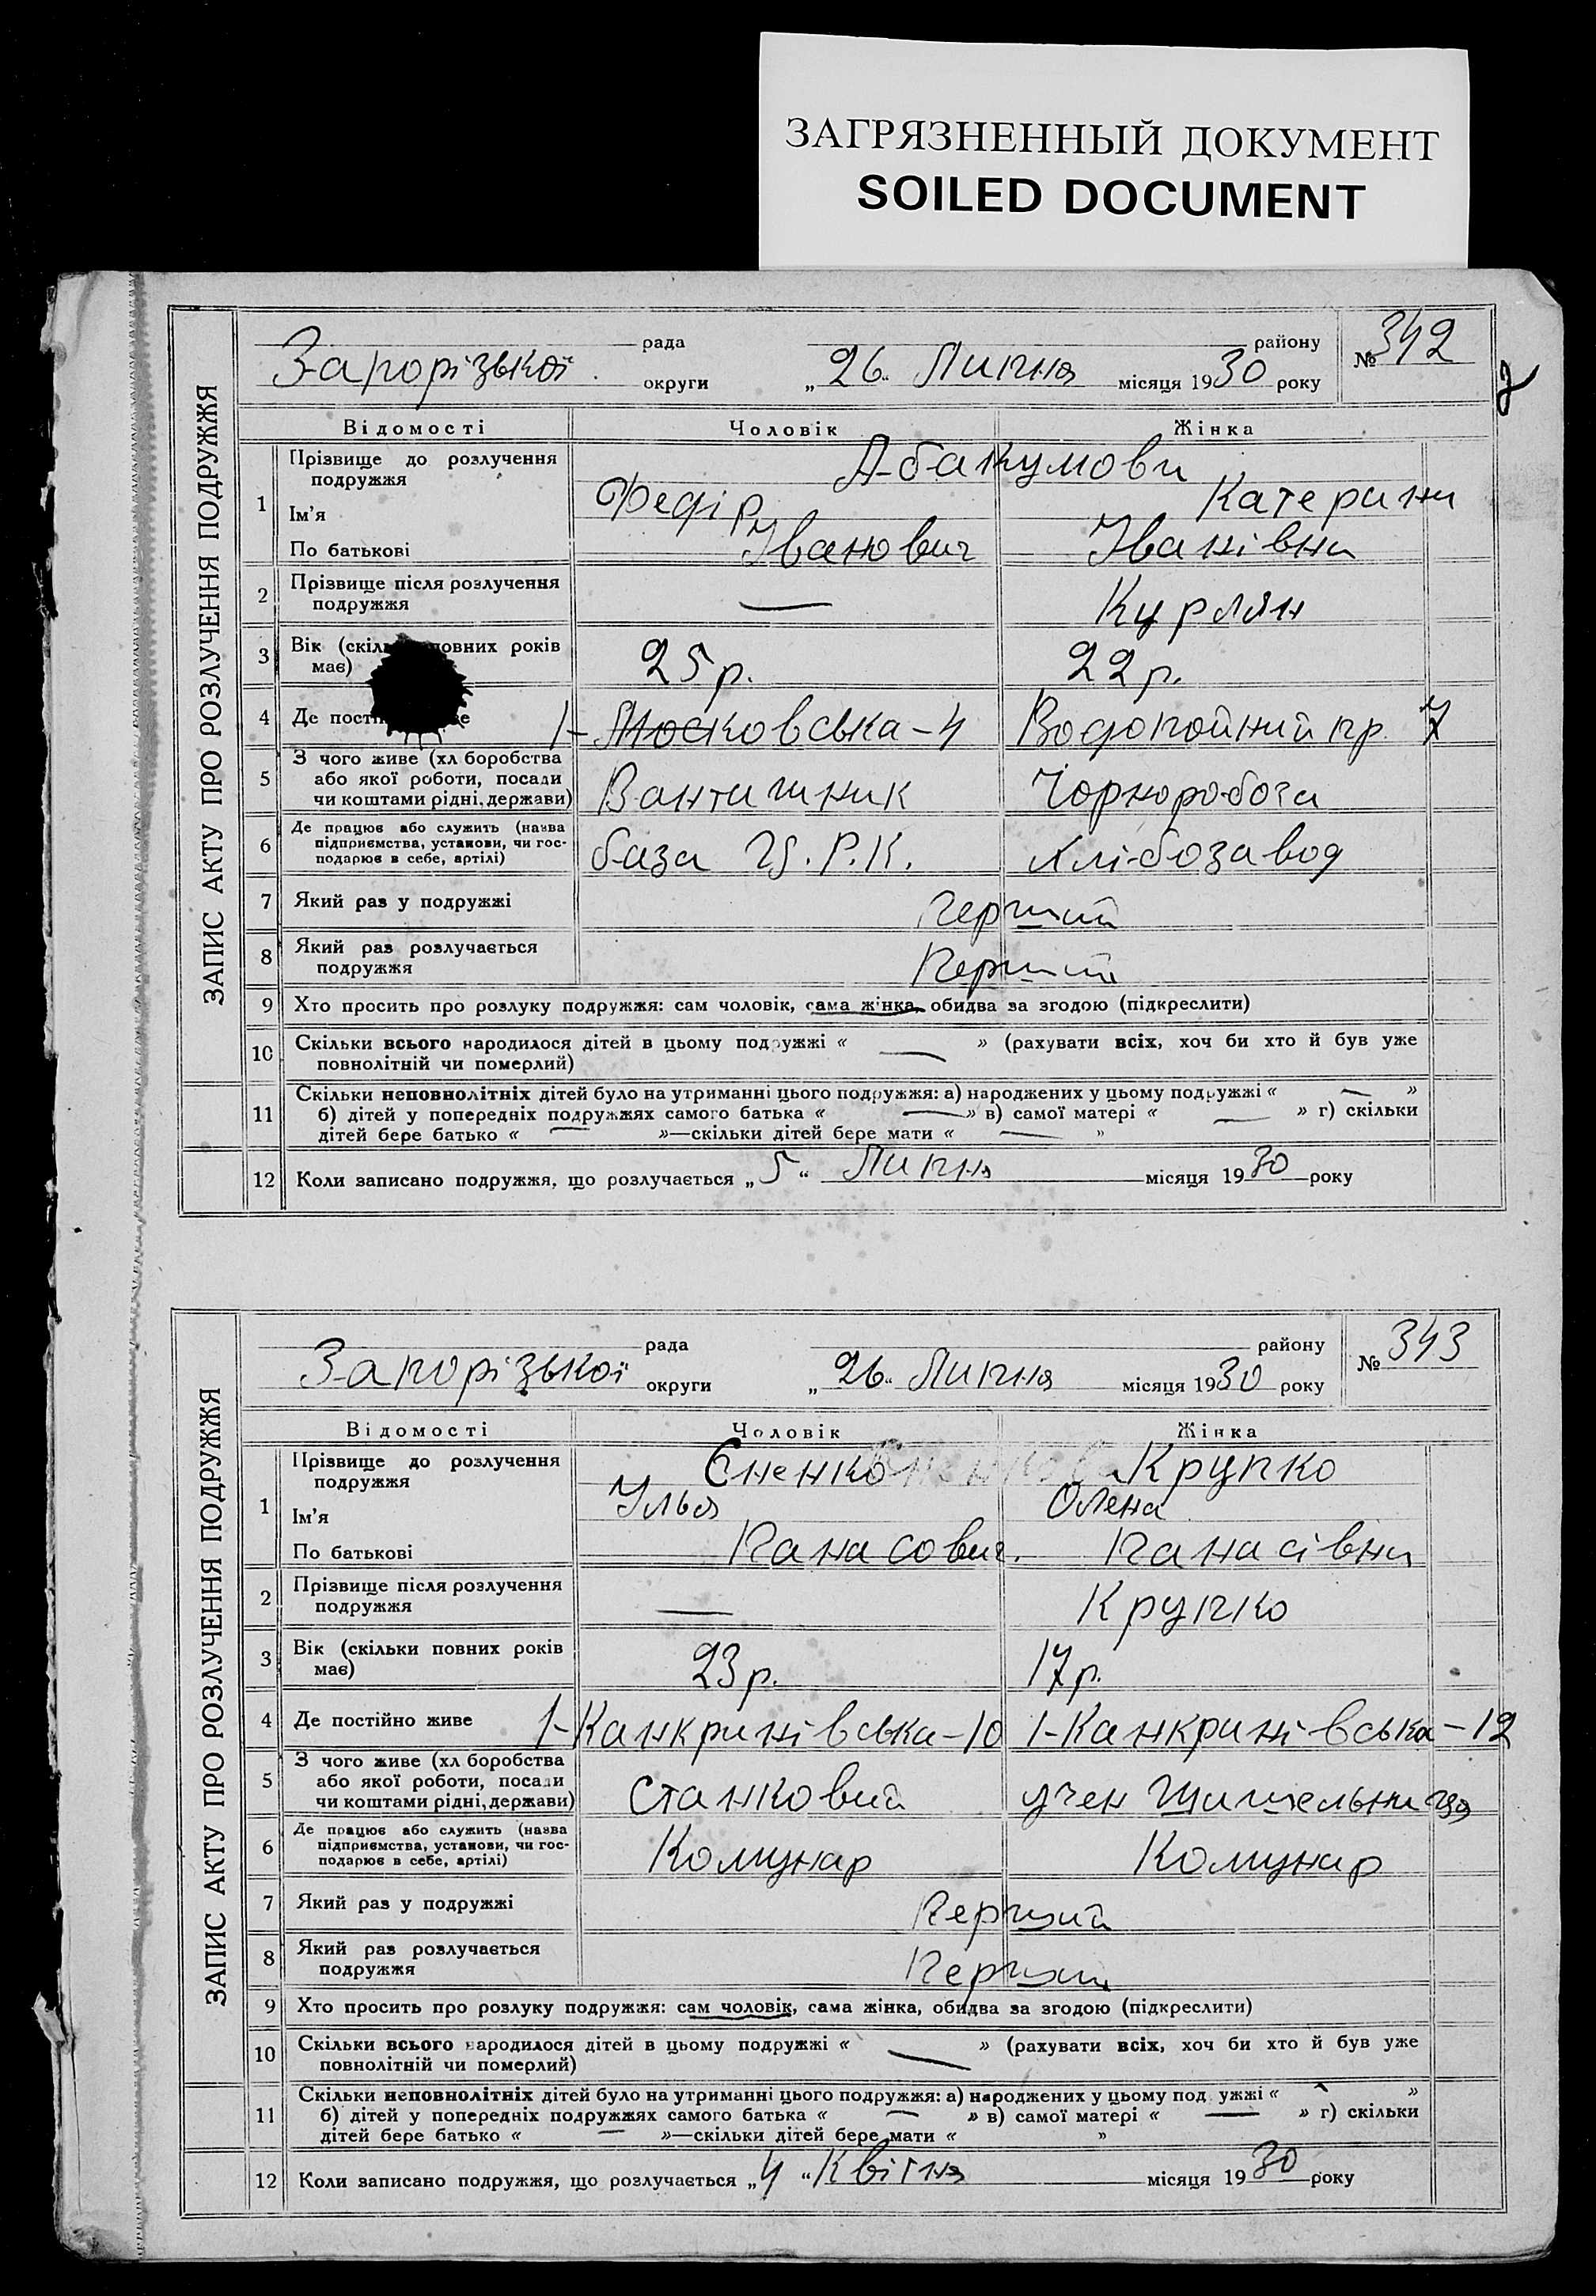 ЗАГРЯЗНЕННЫЙ ДОКУМЕНТ
SOILED DOCUMENT
ЗАПИС АКТУ ПРО РОЗЛУЧЕННЯ ПОДРУЖЖЯ
рада району № 342
Запорізької округи „26“ Липня місяця 1930 року
Відомості Чоловік Жінка
1 Прізвище до розлучення подружжя Абакумови
Ім'я Федір Катерини
По батькові Іванович Іванівни
2 Прізвище після розлучення
подружжя — Курлян
3 Вік (скіль повних років
має) 25 р. 22 р.
4 Де пості 1-Московська-4 Водопойний пр. 7
5 З чого живе (хл боробства
або якої роботи, посади
чи коштами рідні, держави) Вантишник Чорноробоча
6 Де працює або служить (назва
підприємства, установи, чи гос-
подарює в себе, артілі) база Р.К. Хлібозавод
7 Який раз у подружжі Перший
8 Який раз розлучається
подружжя Перший
9 Хто просить про розлуку подружжя: сам чоловік, сама жінка, обидва за згодою (підкреслити)
10 Скільки всього народилося дітей в цьому подружжі « — » (рахувати всіх, хоч би хто й був уже
повнолітній чи померлий)
11 Скільки неповнолітніх дітей було на утриманні цього подружжя: а) народжених у цьому подружжі « — »
б) дітей у попередніх подружжях самого батька « — » в) самої матері « — » г) скільки
дітей бере батько « — »—скільки дітей бере мати « — »
12 Коли записано подружжя, що розлучається „5“ Липня місяця 1930 року
ЗАПИС АКТУ ПРО РОЗЛУЧЕННЯ ПОДРУЖЖЯ
рада району № 343
Запорізької округи „26“ Липня місяця 1930 року
Відомості Чоловік Жінка
1 Прізвище до розлучення
подружжя Єненко Крупко
Ім'я Ілья Олена
По батькові Панасович. Панасівни
2 Прізвище після розлучення
подружжя — Крупко
3 Вік (скільки повних років
має) 23 р. 17 р.
4 Де постійно живе 1-Канкринівська-10 1-Канкринівська-12
5 З чого живе (хл боробства
або якої роботи, посади
чи коштами рідні, держави) Станковий учен Шишельниця
6 Де працює або служить (назва
підприємства, установи, чи гос-
подарює в себе, артілі) Комунар Комунар
7 Який раз у подружжі Перший
8 Який раз розлучається
подружжя Перший
9 Хто просить про розлуку подружжя: сам чоловік, сама жінка, обидва за згодою (підкреслити)
10 Скільки всього народилося дітей в цьому подружжі « — » (рахувати всіх, хоч би хто й був уже
повнолітній чи померлий)
11 Скільки неповнолітніх дітей було на утриманні цього подружжя: а) народжених у цьому под ужжі « — »
б) дітей у попередніх подружжях самого батька « — » в) самої матері « — » г) скільки
дітей бере батько « — »—скільки дітей бере мати « »
12 Коли записано подружжя, що розлучається „4“ Квітня місяця 1930 року